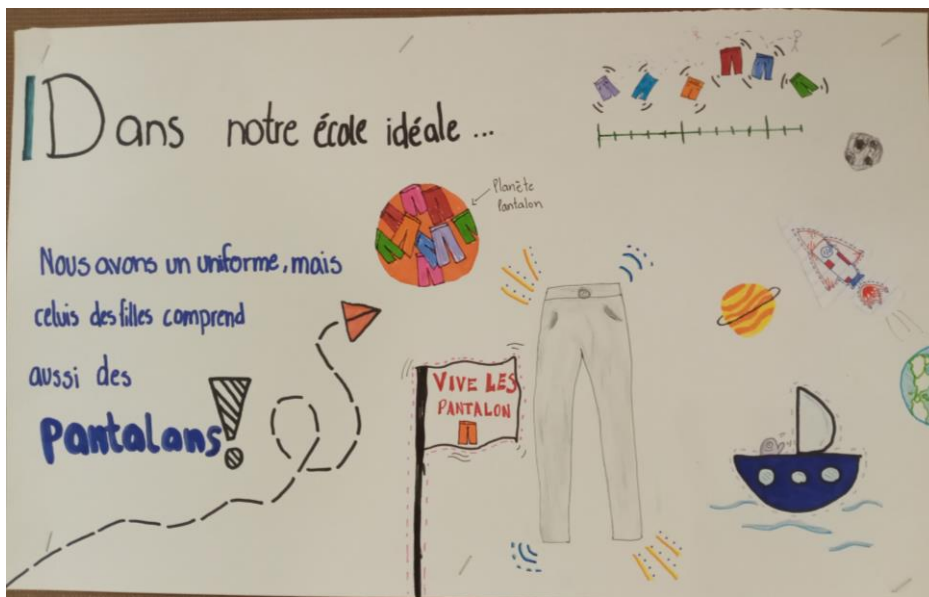 Dans notre école idéale ...
Planète
Pantalon
Nous avons un uniforme, mais
celuis des filles comprend
aussi des
pantalans!
VIVE LES
PANTALON